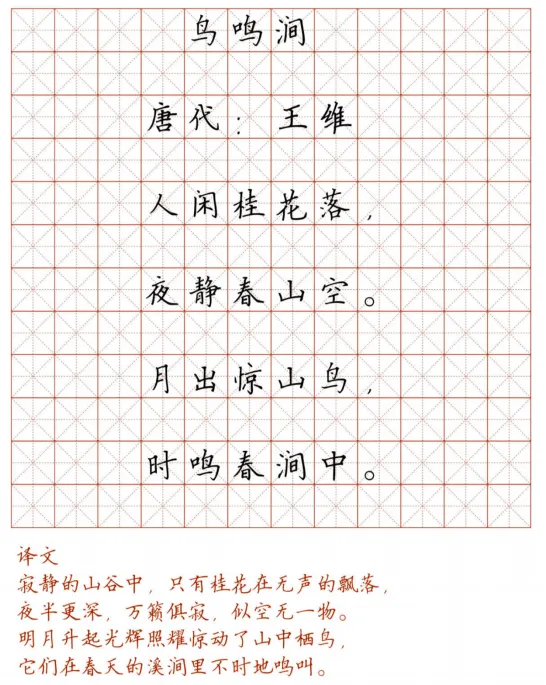 鸟鸣涧
唐代：王维
人闲桂花落，
夜静春山空。
月出惊山鸟，
时鸣春涧中。
译文
寂静的山谷中，只有桂花在无声的飘落，
夜半更深，万籁俱寂，似空无一物。
明月升起光辉照耀惊动了山中栖鸟，
它们在春天的溪涧里不时地鸣叫。